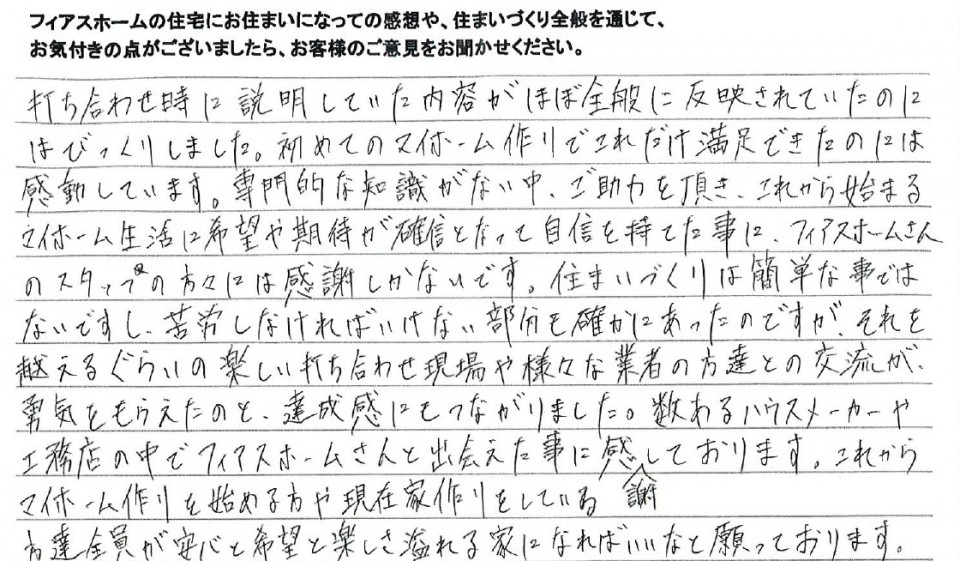 フィアスホームの住宅にお住まいになっての感想や、住まいづくり全般を通じて、
お気付きの点がございましたら、お客様のご意見をお聞かせください。
打ち合わせ時に説明していた内容がほぼ全般に反映されていたのに
はびっくりしました。初めてのマイホーム作りでこれだけ満足できたのには
感動しています。専門的な知識がない中、ご助力を頂き、これから始まる
マイホーム生活に希望や期待が確信となって自信を持てた事に、フィアスホームさん
のスタッフの方々には感謝しかないです。住まいづくりは簡単な事では
ないですし、苦労しなければいけない部分も確かにあったのですが、それを
越えるぐらいの楽しい打ち合わせ現場や様々な業者の方達との交流が、
勇気をもらえたのと、達成感にもつながりました。数あるハウスメーカーや
工務店の中でフィアスホームさんと出会えた事に感謝しております。これから
マイホーム作りを始める方や現在家作りをしている
方達全員が安心と希望と楽しさ溢れる家になればいいなと願っております。